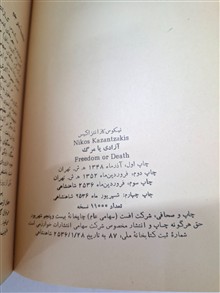 نیکوس کازانتزاکیس
Nikos Kazantzakis
آزادی یا مرگ
Freedom or Death
چاپ اول، آذرماه ۱۳۳۸ ه. ش. تهران
چاپ دوم، فروردین‌ماه ۱۳۵۲ ه. ش. تهران
چاپ سوم، فروردین‌ماه ۲۵۳۶ شاهنشاهی
چاپ چهارم، شهریور ماه ۲۵۳۶ شاهنشاهی
تعداد ۱۱۰۰۰ نسخه
چاپ و صحافی، شرکت افست (سهامی عام) چاپخانهٔ بیست و پنجم شهریور.
حق هرگونه چاپ و انتشار مخصوص شرکت سهامی انتشارات خوارزمی است
شمارهٔ ثبت کتابخانهٔ ملی، ۸۷ به تاریخ ۲۵۳۶/۱/۲۸